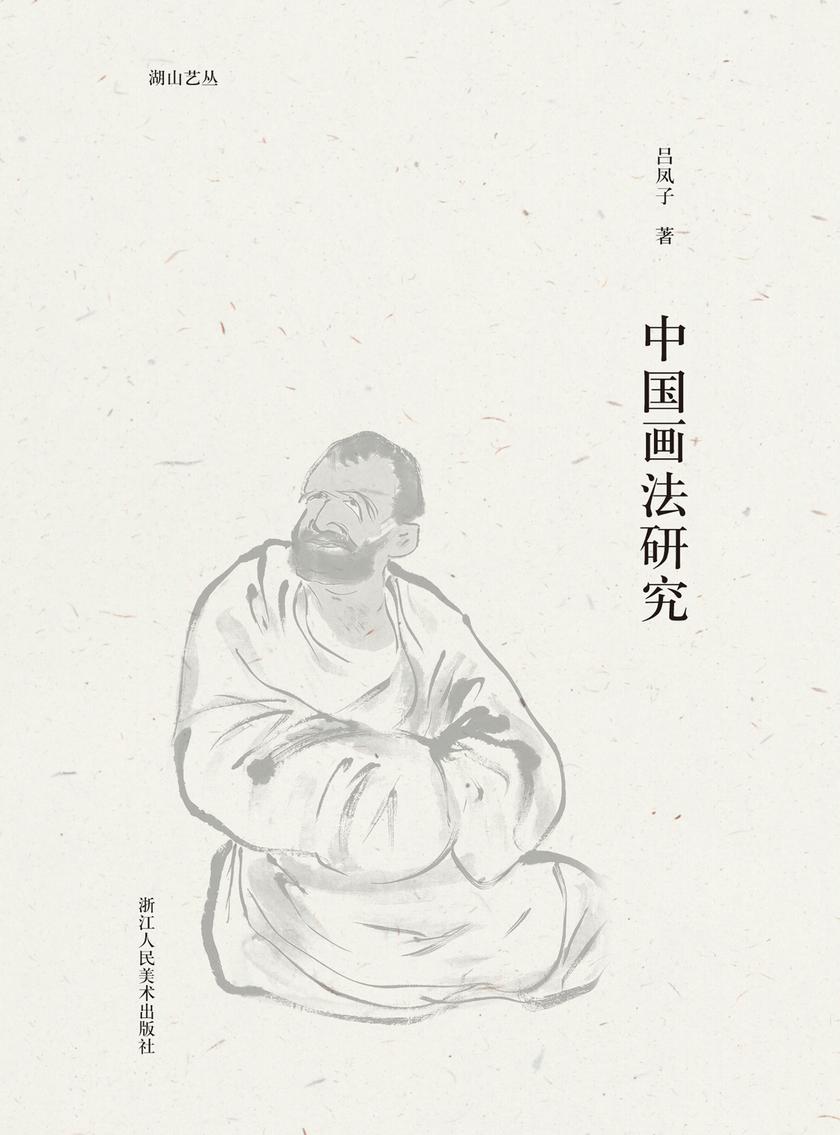 湖山艺丛
吕凤子 著
中国画法研究
浙江人民美术出版社